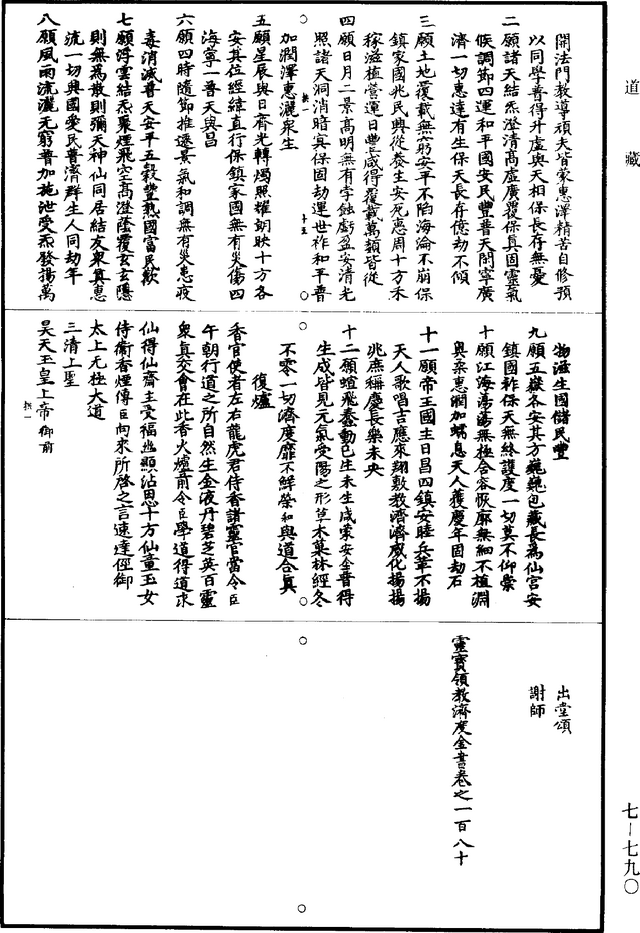 道藏
開法門教導頑夫皆蒙惠澤精苦自修預
以同學普得升虛與天相保長存無憂
二願諸天結炁澄清高虛廣覆保真固靈氣
候調節四運和平國安民豐普天閒寧廣
濟一切惠達有生保天長存億劫不傾
三願土地覆載無窮安平不陷海淪不崩保
鎮家國兆民興從養生安死惠周十方禾
稼滋植營運日豐咸得覆載萬類皆從
四願日月二景高明無有孛蝕虧盈安清光
照諸天洞消暗冥保固劫運世祚和平普
加潤澤惠灑衆生
五願星辰與日齊光轉燭照耀朗映十方各
安其位經緯直行保鎮家國無有災傷四
海寧一普天與昌
六願四時隨節推遷景氣和調無有災患疫
毒消滅普天安平五穀豐熟國富民歡
七願浮雲結炁聚煙飛空高澄陰覆玄玄隱
則無為散則彌天神仙同居結友衆真惠
流一切興國愛民普濟群生人同劫年
八願風雨流灑无窮普加施泄受炁發揚萬
物滋生國儲民豐
九願五嶽各安其方巍巍包藏長為仙宮安
鎮國祚保天無終護度一切莫不仰崇
十願江海蕩蕩無極合容恢廓無細不植淵
奧柔惠潤加蠕息天人獲慶年固劫石
十一願帝王國主日昌四鎮安睦兵革不揚
天人歌唱吉應來翔敷教濟濟威化揚揚
兆庶稱慶長樂未央
十二願蝖飛蠢動已生未生咸蒙安全普得
生成皆見元氣受陽之形草木菓林經冬
不零一切濟度靡不鮮榮和與道合真
復爐
香官使者左右龍虎君侍香諸靈官當令臣
午朝行道之所自然生金液丹碧芝英百靈
衆真交會在此香火爐前令臣學道得道求
仙得仙齋主受福幽顯沾恩十方仙童玉女
侍衛香煙傳臣向來所啓之言速達徑御
太上无極大道
三清上聖
昊天玉皇上帝御前
出堂頌
謝師
靈寶領教濟度金書卷之一百八十
七—七九〇